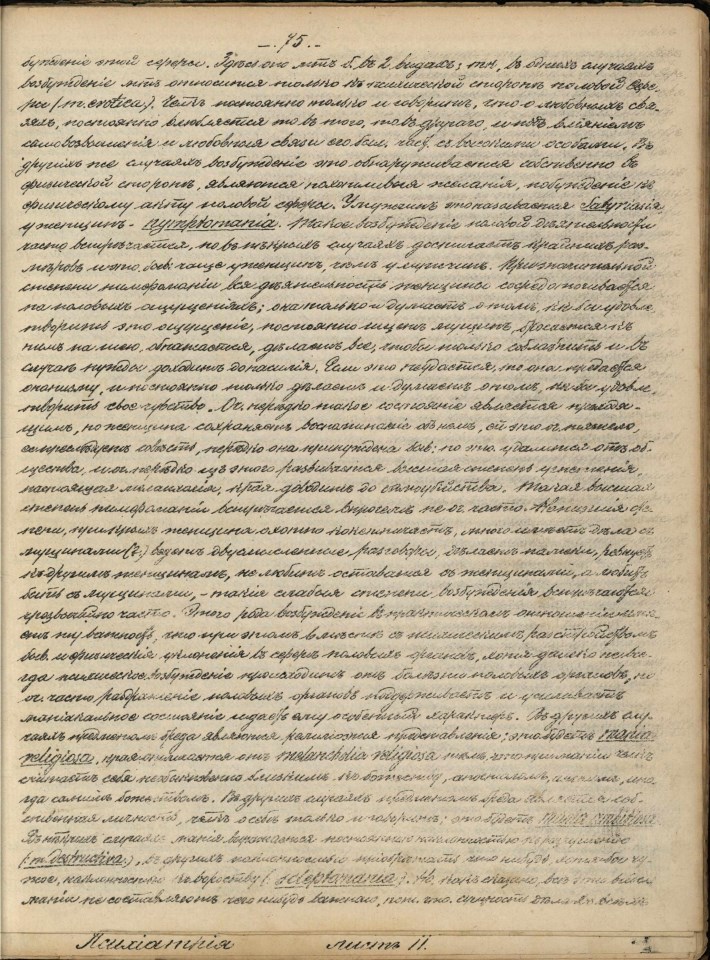 —. 75. –
бужденіе этой сферы. Здѣсь оно мтъ б. въ 2. видахъ; тк, въ однихъ случаяхъ
возбужденіе мтъ относится только къ психической сторонѣ половой сфе-
ры (m. erotica). Челъ постоянно только и говоритъ, что о любовныхъ свя-
зяхъ, постоянно влюбляется то въ того, то въ другого, и подъ вліяніемъ
самовозвышенія и любовныя связи его быв. часу съ высокими особами. Въ
другихъ же случаяхъ возбужденіе это обнаруживается собственно въ
физической сторонѣ, являются похотливыя желанія, побужденіе къ
физическому акту половой сферы. У мужчинъ это называется Satyriasis,
у женщинъ - nymphomania. Такое возбужденіе половой дѣятельности
часто встрѣчается, но въ нѣкрыхъ случаяхъ достигаетъ крайнихъ раз-
мѣровъ и это бываетъ чаще у женщинъ, чѣмъ у мужчинъ. При значительной
степени нимфоманіи вся дѣятельность женщины сосредоточивается
на половыхъ ощущеніяхъ; она только и думаетъ о томъ, какъ бы удовле-
творить это ощущеніе, постоянно ищетъ мущинъ, бросается къ
нимъ на шею, обнажается, дѣлаетъ все, чтобы только соблазнить и въ
случаѣ нужды доходитъ до насилія. Если это не удастся, то она предается
онанизму, и постоянно только дѣлаетъ и думаетъ о томъ, какъ бы удовле-
творить свое чувство. Оч. нерѣдко такое состояніе является преходя-
щимъ, но женщина сохраняетъ воспоминаніе о немъ, ей это оч. тяжело,
совѣсть, нерѣдко она принуждена быв. по это удалиться отъ об-
щества, и оч. нерѣдко изъ этого развивается высшая степень угнетенія,
настоящая меланхолія, края доводитъ до самоубійства. Такая высшая
степень нимфоманіи встрѣчается впрочемъ не оч. часто.
пени, при крыхъ женщина охотно кокетничаетъ, много имѣетъ дѣла съ
мущинами, ведетъ двусмысленные разговоры, дѣлаетъ намеки, ревнуетъ
къ другимъ женщинамъ, не любитъ оставаться съ женщинами, а любитъ
быть съ мущинами, - такія слабыя степени возбужденія встрѣчаются
чрезвычайно часто. Этого рода возбужденіе въ практическомъ отношеніи имѣ-
етъ ту важность, что при этомъ вмѣстѣ съ психическимъ разстройствомъ
быв. и физическія уклоненія въ сферѣ половыхъ органовъ, хотя далеко не все-
гда психическое возбужденіе происходитъ отъ болѣзни половыхъ органовъ, но
оч. часто раздраженіе половыхъ органовъ поддерживаетъ и усиливаетъ
маніакальное состояніе и даетъ ему особенный характеръ. Въ другихъ слу-
чаяхъ предметомъ бреда являются религіозныя представленія; это будетъ mania
religiosa, края отличается отъ melancholia religiosa тѣмъ, что при маніи челъ
считаетъ себя необыкновенно близкимъ къ божеству, апостоломъ, ино-
гда самимъ божествомъ. Въ другихъ случаяхъ предметомъ бреда является соб-
ственная личность, челъ о себѣ только и говоритъ; это будетъ mania ambitiosa
Въ нѣкрыхъ случаяхъ манія выражается постоянною наклонностью къ разрушенію
(m. destructiva), въ другихъ наклонностью пріобрѣтать что нибудь, хотя бы чу-
жое, наклонностью къ воровству (kleptomania). Но, какъ сказано, всѣ эти виды
маніи не составляютъ чего нибудь важнаго, пот. что сущность дѣла въ
Психіатрія листъ 11.